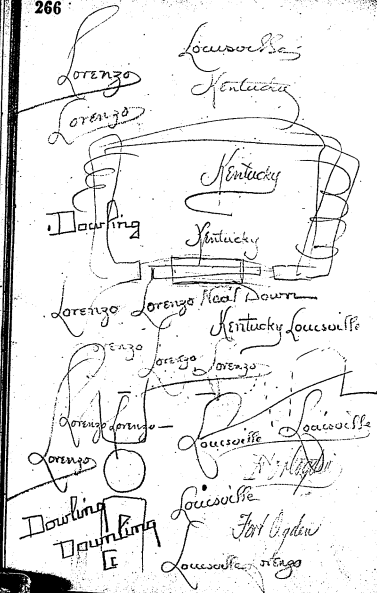 266
Louisville
Lorenzo
Kentucky
Lorenzo
Kentucky
Dowling
Kentucky
Lorenzo Lorenzo Neal Down
Kentucky Louisville
orenzo
Lorenzo Lorenzo
Lorenzo Lorenzo
Louisville Louisville
Lorenzo
Louisville
Dowling
Fort Ogden
Dowling
Louisville orenzo